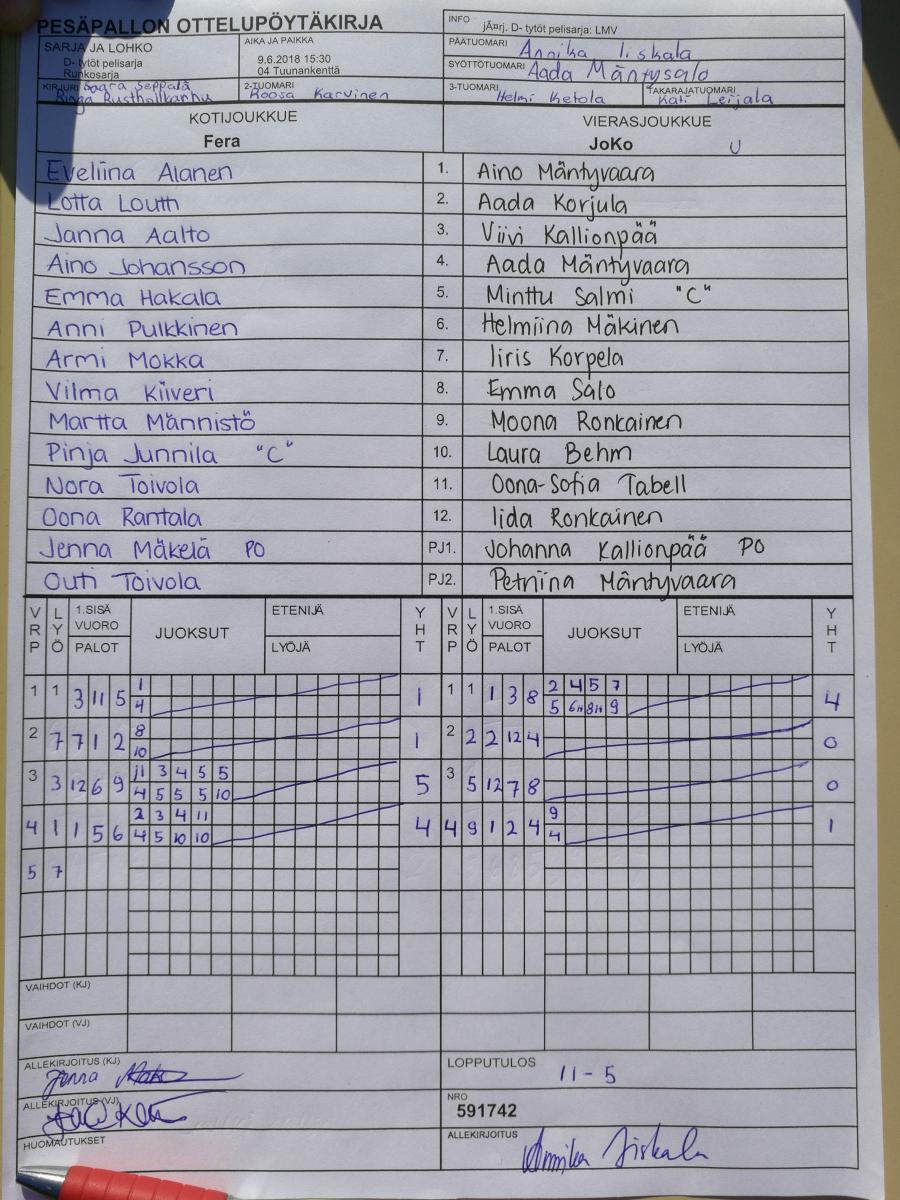 PESÄPALLON OTTELUPÖYTÄKIRJA
INFO jÃ¤rj. D- tytöt pelisarja: LMV
SARJA JA LOHKO
D- tytöt pelisarja
Runkosarja
AIKA JA PAIKKA
9.6.2018 15:30
04 Tuunankenttä
PÄÄTUOMARI Annika Iiskala
SYÖTTÖTUOMARI Aada Mäntysalo
KIRJURI Saara Seppälä
2-TUOMARI Roosa Karvinen
3-TUOMARI Helmi Ketola
TAKARAJATUOMARI Kati Leijala
KOTIJOUKKUE
Fera
VIERASJOUKKUE
JoKo U
Eveliina Alanen 1. Aino Mäntyvaara
Lotta Louth 2. Aada Korjula
Janna Aalto 3. Viivi Kallionpää
Aino Johansson 4. Aada Mäntyvaara
Emma Hakala 5. Minttu Salmi "C"
Anni Pulkkinen 6. Helmiina Mäkinen
Armi Mokka 7. Iiris Korpela
Vilma Kiiveri 8. Emma Salo
Martta Männistö 9. Moona Ronkainen
Pinja Junnila "C" 10. Laura Behm
Nora Toivola 11. Oona-Sofia Tabell
Oona Rantala 12. Iida Ronkainen
Jenna Mäkelä PO PJ1. Johanna Kallionpää PO
Outi Toivola PJ2. Petriina Mäntyvaara
VRP LYÖ 1.SISÄ VUORO PALOT JUOKSUT ETENIJÄ LYÖJÄ YHT VRP LYÖ 1.SISÄ VUORO PALOT JUOKSUT ETENIJÄ LYÖJÄ YHT
1 1 3 11 5 1 1 1 1 1 3 8 2 4 5 7 4
4 5 6H 8H 9
2 7 7 1 2 8 1 2 2 2 12 4 0
10
3 3 12 6 9 11 3 4 5 5 5 3 5 12 7 8 0
4 5 5 5 10
4 1 1 5 6 2 3 4 11 4 4 9 1 2 4 9 1
4 5 10 10 4
5 7
VAIHDOT (KJ)
VAIHDOT (VJ)
ALLEKIRJOITUS (KJ) Jenna
LOPPUTULOS 11-5
ALLEKIRJOITUS (VJ)
NRO
591742
HUOMAUTUKSET
ALLEKIRJOITUS Annika Iiskala